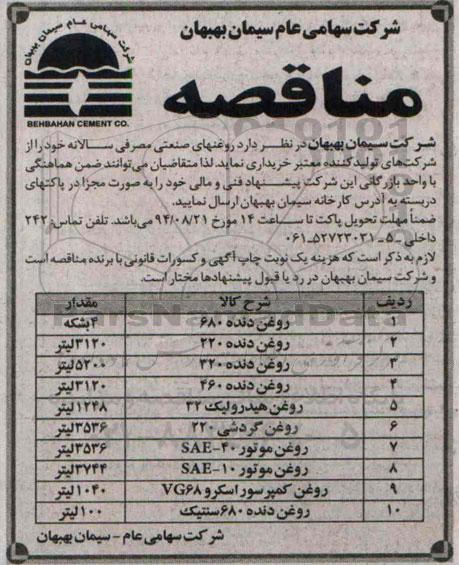 شرکت سهامی عام سیمان بهبهان
شرکت سهامی عام سیمان بهبهان
BEHBAHAN CEMENT CO.
مناقصه
شرکت سیمان بهبهان در نظر دارد روغنهای صنعتی مصرفی سالانه خود را از
شرکت‌های تولید کننده معتبر خریداری نماید. لذا متقاضیان می‌توانند ضمن هماهنگی
با واحد بازرگانی این شرکت پیشنهاد فنی و مالی خود را به صورت مجزا در پاکتهای
دربسته به آدرس کارخانه سیمان بهبهان ارسال نمایید.
ضمناً مهلت تحویل پاکت تا ساعت ۱۴ مورخ ۹۴/۰۸/۲۱ می‌باشد. تلفن تماس: ۲۴۲
داخلی ـ ۵ ـ ۰۶۱-۵۲۷۲۳۰۳۱
لازم به ذکر است که هزینه یک نوبت چاپ آگهی و کسورات قانونی با برنده مناقصه است
و شرکت سیمان بهبهان در رد یا قبول پیشنهادها مختار است.
ردیف شرح کالا مقدار
۱ روغن دنده ۶۸۰ ۴بشکه
۲ روغن دنده ۲۲۰ ۳۱۲۰لیتر
۳ روغن دنده ۳۲۰ ۵۲۰۰لیتر
۴ روغن دنده ۴۶۰ ۳۱۲۰لیتر
۵ روغن هیدرولیک ۳۲ ۱۲۴۸لیتر
۶ روغن گردشی ۲۲۰ ۳۵۳۶لیتر
۷ روغن موتور SAE-۴۰ ۳۵۳۶لیتر
۸ روغن موتور SAE-۱۰ ۳۷۴۴لیتر
۹ روغن کمپرسور اسکرو VG۶۸ ۱۰۴۰لیتر
۱۰ روغن دنده ۶۸۰سنتیک ۱۰۰لیتر
شرکت سهامی عام - سیمان بهبهان